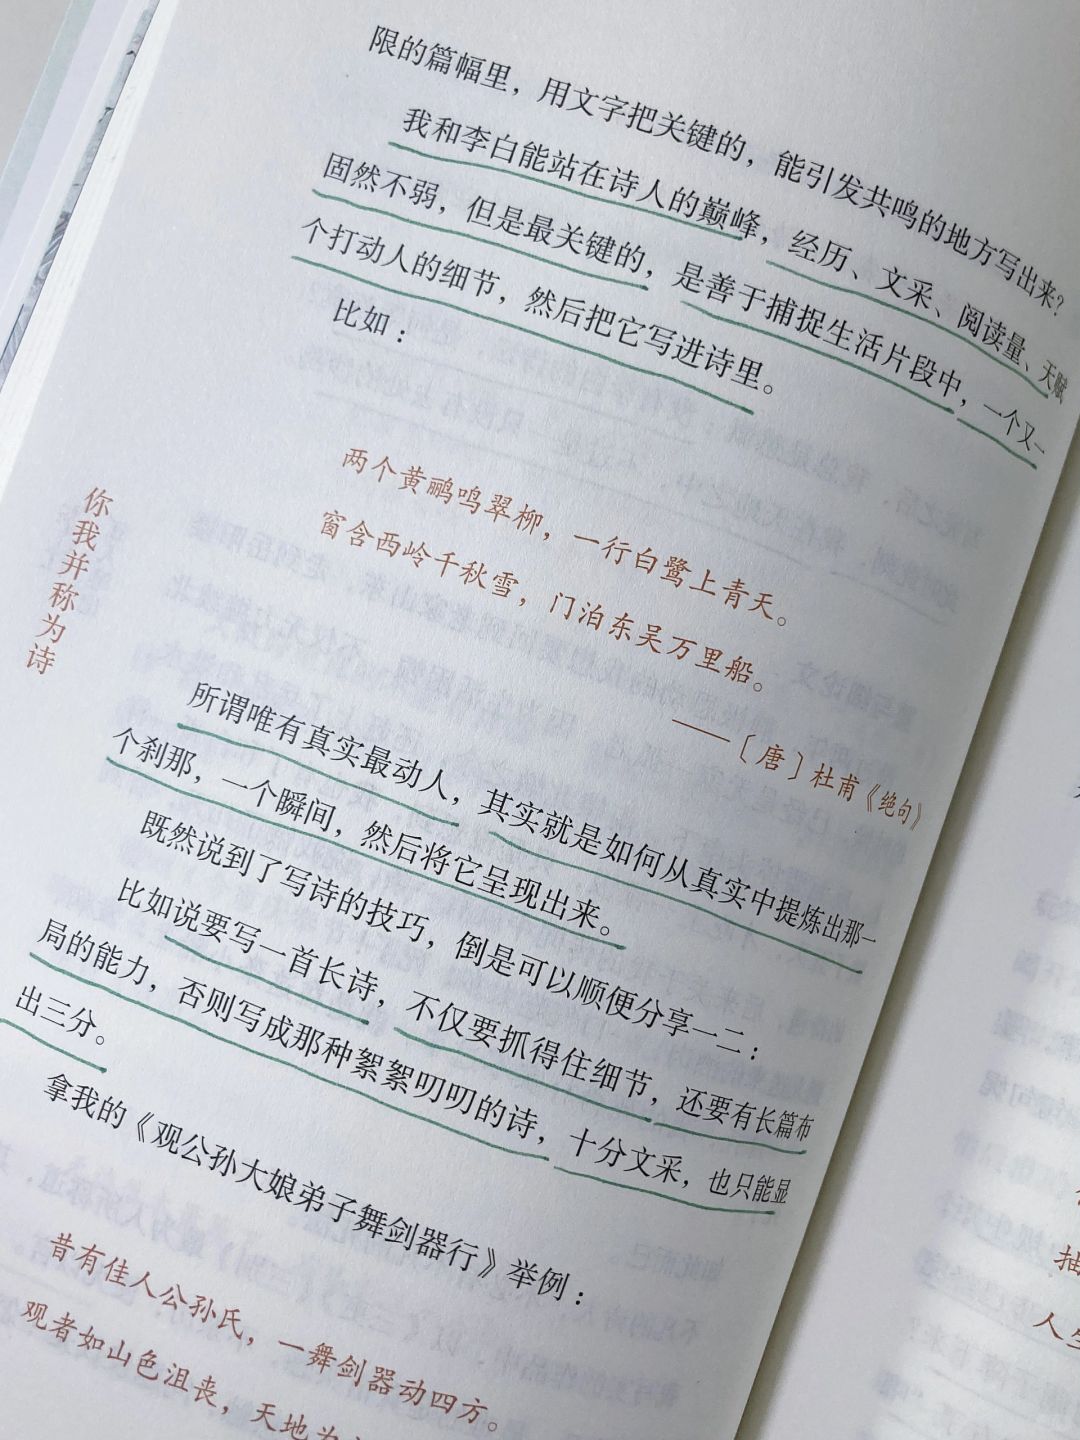 限的篇幅里，用文字把关键的，能引发共鸣的地方写出来？
我和李白能站在诗人的巅峰，经历、文采、阅读量、天赋
固然不弱，但是最关键的，是善于捕捉生活片段中，一个又一
个打动人的细节，然后把它写进诗里。
比如：
两个黄鹂鸣翠柳，一行白鹭上青天。
窗含西岭千秋雪，门泊东吴万里船。
——〔唐〕杜甫《绝句》
你我并称为诗
所谓唯有真实最动人，其实就是如何从真实中提炼出那一
个刹那，一个瞬间，然后将它呈现出来。
既然说到了写诗的技巧，倒是可以顺便分享一二：
比如说要写一首长诗，不仅要抓得住细节，还要有长篇布
局的能力，否则写成那种絮絮叨叨的诗，十分文采，也只能显
出三分。
拿我的《观公孙大娘弟子舞剑器行》举例：
昔有佳人公孙氏，一舞剑器动四方。
观者如山色沮丧，天地为
抽
人生